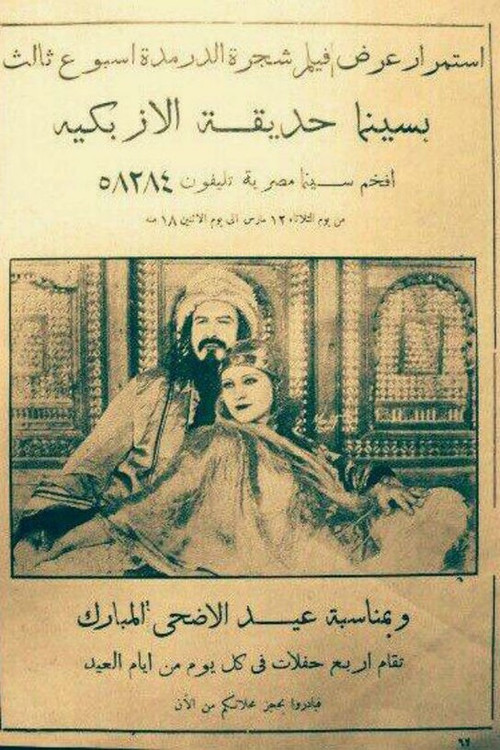 استمرار عرض فيلم شجرة الدر مدة اسبوع ثالث
بسينما حديقة الازبكيه
افخم سينما مصرية تليفون ٥٨٢٨٤
من يوم الثلاثاء ١٢ مارس الى يوم الاثنين ١٨ منه
وبمناسبة عيد الاضحى المبارك
تقام اربع حفلات فى كل يوم من ايام العيد
فبادروا بحجز محلاتكم من الأن
٦٢